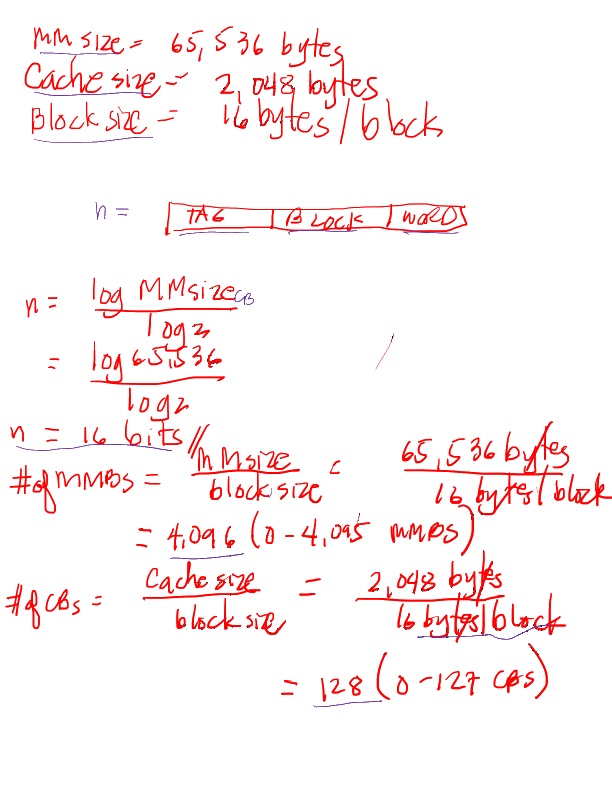 MM size = 65,536 bytes
Cache size = 2,048 bytes
Block size = 16 bytes/block
n = TAG BLOCK WORD
n = log MMsize CB
log 2
= log 65,536
log 2
n = 16 bits //
#of MMBs = MMsize = 65,536 bytes
block size 16 bytes/block
= 4,096 (0-4,095 MMBs)
#of CBs = Cache size = 2,048 bytes
block size 16 bytes/block
= 128 (0-127 CBs)